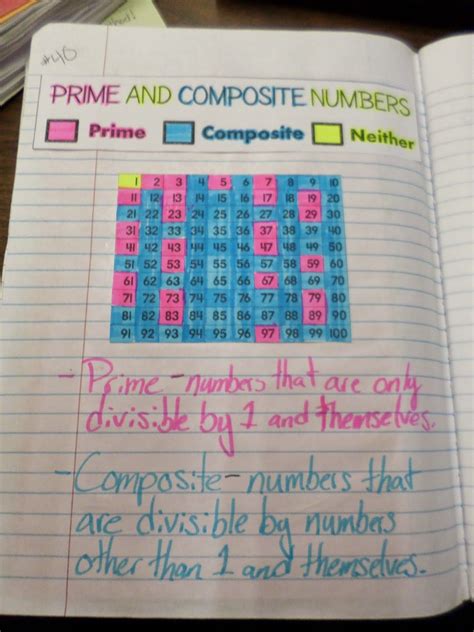 #40
PRIME AND COMPOSITE NUMBERS
Prime Composite Neither
1 2 3 4 5 6 7 8 9 10
11 12 13 14 15 16 17 18 19 20
21 22 23 24 25 26 27 28 29 30
31 32 33 34 35 36 37 38 39 40
41 42 43 44 45 46 47 48 49 50
51 52 53 54 55 56 57 58 59 60
61 62 63 64 65 66 67 68 69 70
71 72 73 74 75 76 77 78 79 80
81 82 83 84 85 86 87 88 89 90
91 92 93 94 95 96 97 98 99 100
- Prime - numbers that are only
divisible by 1 and themselves.
- Composite - numbers that
are divisible by numbers
other than 1 and themselves.